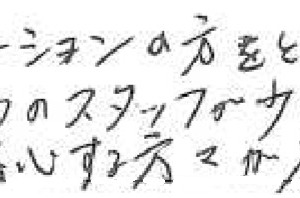 ーションの方をと
のスタッフが少
心する方々が